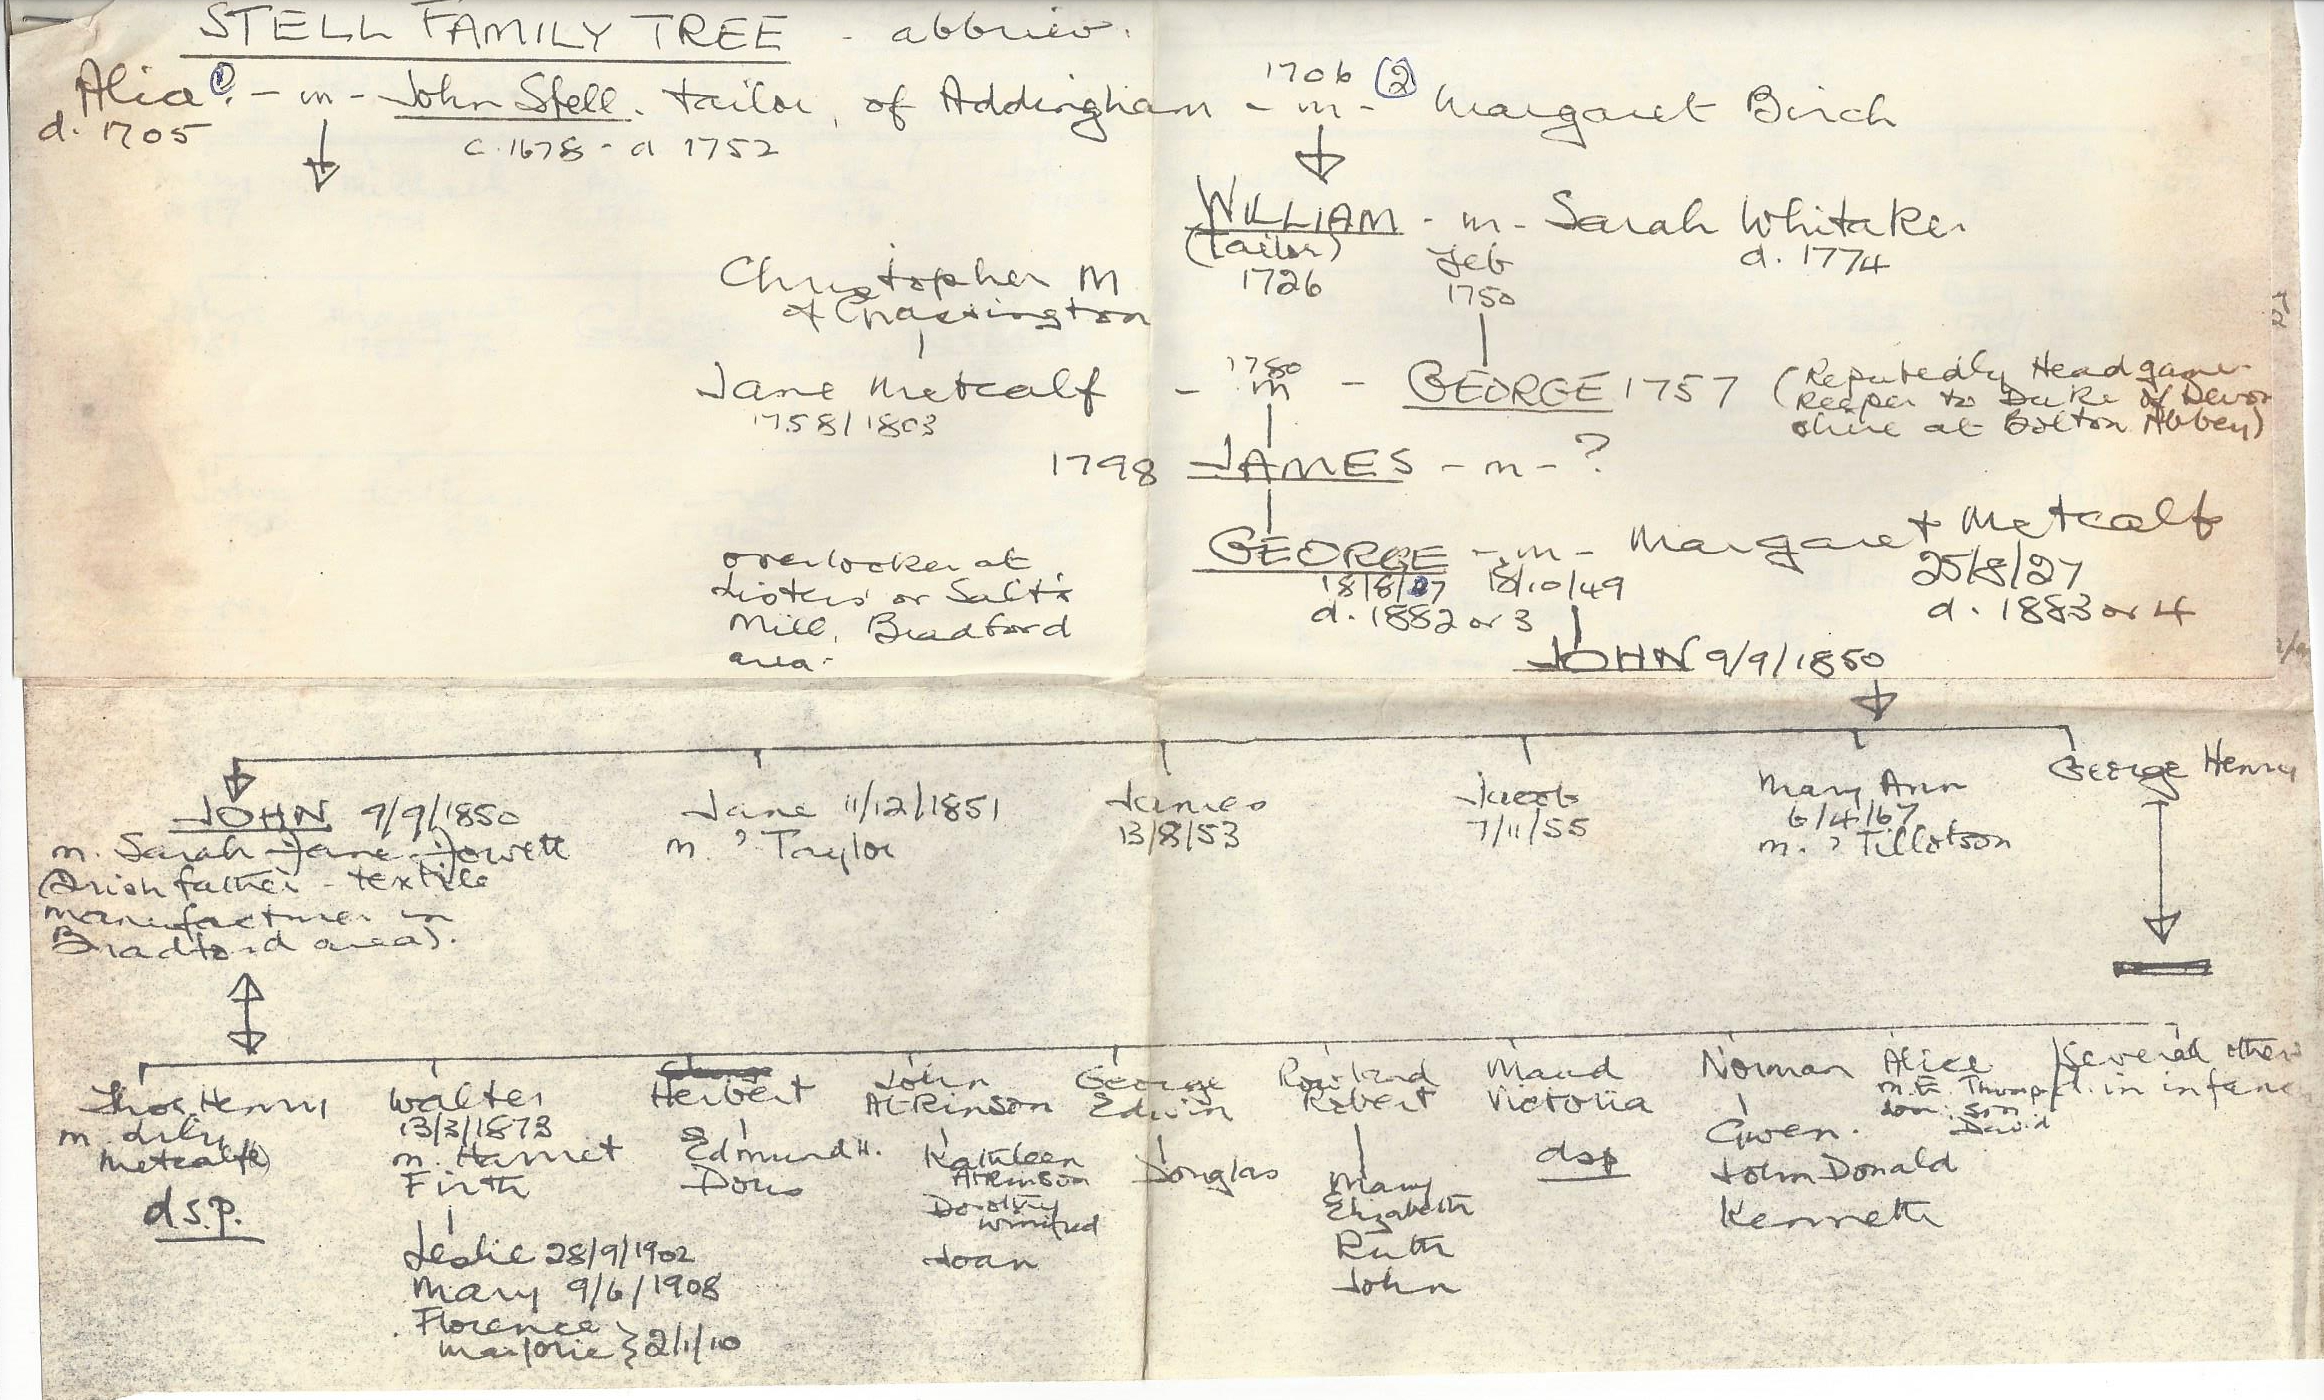 STELL FAMILY TREE - abbriev.
1706
Alice (1) - m - John Stell. tailor, of Addingham - m - (2) Margaret Birch
d. 1705
c. 1678 - d 1752
WILLIAM - m - Sarah Whitaker
(tailor) Feb d. 1774
1726 1750
Christopher M
of Grassington
1780
Jane Metcalf - m - GEORGE 1757 (Reputedly Head game-
1758/1803 keeper to Duke of Devon
shire at Bolton Abbey)
1798 JAMES - m - ?
GEORGE - m - Margaret Metcalf
18/8/27 18/10/49 25/8/27
d. 1882 or 3 d. 1883 or 4
overlooker at
Listers' or Salt's
Mill, Bradford
area.
JOHN 9/9/1850
JOHN 9/9/1850
m. Sarah Jane Jowett
(Irish father - textile
manufacturer in
Bradford area).
Jane 11/12/1851
m. ? Taylor
James
13/8/53
Jacob
7/11/55
Mary Ann
6/4/67
m. ? Tillotson
George Henry
Thos. Henry
m. Lily
Metcalf(e)
d.s.p.
Walter
13/3/1873
m. Harriet
Firth
Leslie 28/9/1902
Mary 9/6/1908
Florence
Marjorie } 2/1/10
Herbert
Edmund H.
Doris
John
Atkinson
Kathleen
Atkinson
Dorothy
Winifred
Joan
George
Edwin
Douglas
Rowland
Robert
Mary
Elizabeth
Ruth
John
Maud
Victoria
dsp
Norman
Gwen.
John Donald
Kenneth
Alice
son
David
Several others
d. in infanc